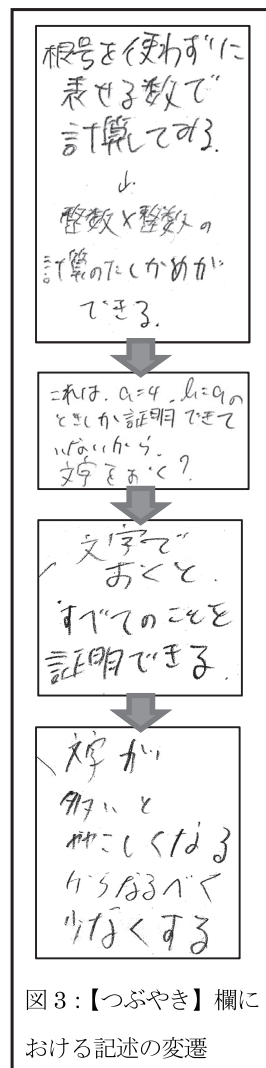 根号を使わずに
表せる数で
計算してみる.
↓
整数×整数の
計算のたしかめが
できる.
これは. a=4. b=9の
ときしか証明できて
いないから.
文字をおく?
文字で
おくと.
すべてのことを
証明できる.
文字が
多いと
ややこしくなる
からなるべく
少なくする
図3:【つぶやき】欄に
おける記述の変遷